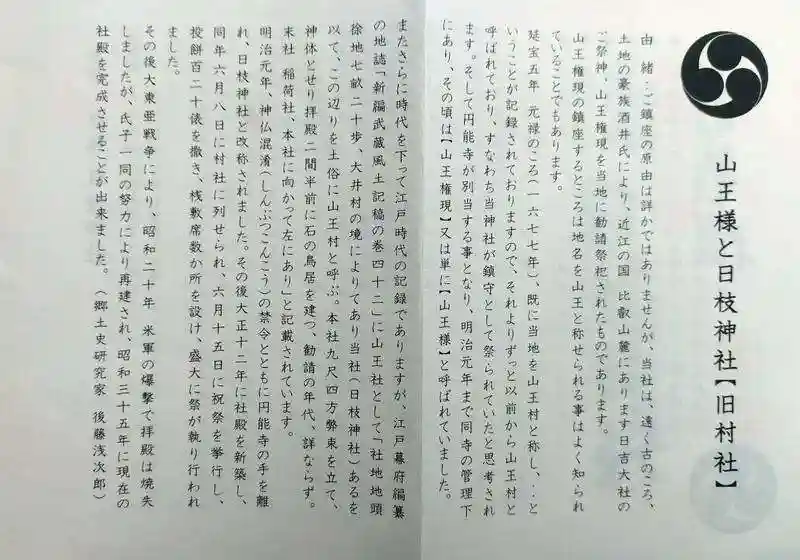 山王様と日枝神社【旧村社】
由 緒…ご鎮座の原由は詳かではありませんが、当社は、遠く古のころ、
土地の豪族酒井氏により、近江の国 比叡山麓にあります日吉大社の
ご祭神、山王権現を当地に勧請祭祀されたものであります。
山王権現の鎮座するところは地名を山王と称せられる事はよく知られ
ていることでもあります。
延宝五年 元禄のころ(一六七七年)、既に当地を山王村と称し、...と
いうことが記録されておりますので、それよりずっと以前から山王村と
呼ばれており、すなわち当神社が鎮守として祭られていたと思考され
ます。そして円能寺が別当する事となり、明治元年まで同寺の管理下
にあり、その頃は【山王権現】又は単に【山王様】と呼ばれていました。
またさらに時代を下って江戸時代の記録でありますが、江戸幕府編纂
の地誌「新編武蔵風土記稿の巻四十二」に山王社として「社地地頭
徐地七畝二十歩、大井村の境によりてあり当社(日枝神社)あるを
以て、この辺りを土俗に山王村と呼ぶ。本社九尺四方弊束を立て、
神体とせり拝殿二間半前に石の鳥居を建つ、勧請の年代、詳ならず。
末社 稲荷社、本社に向かって左にあり」と記載されています。
明治元年、神仏混淆(しんぶつこんこう)の禁令とともに円能寺の手を離
れ、日枝神社と改称されました。その後大正十二年に社殿を新築し、
同年六月八日に村社に列せられ、六月十五日に祝祭を挙行し、
投餅百二十俵を撒き、桟敷席数か所を設け、盛大に祭が執り行われ
ました。
その後大東亜戦争により、昭和二十年 米軍の爆撃で拝殿は焼失
しましたが、氏子一同の努力により再建され、昭和三十五年に現在の
社殿を完成させることが出来ました。(郷土史研究家 後藤浅次郎)